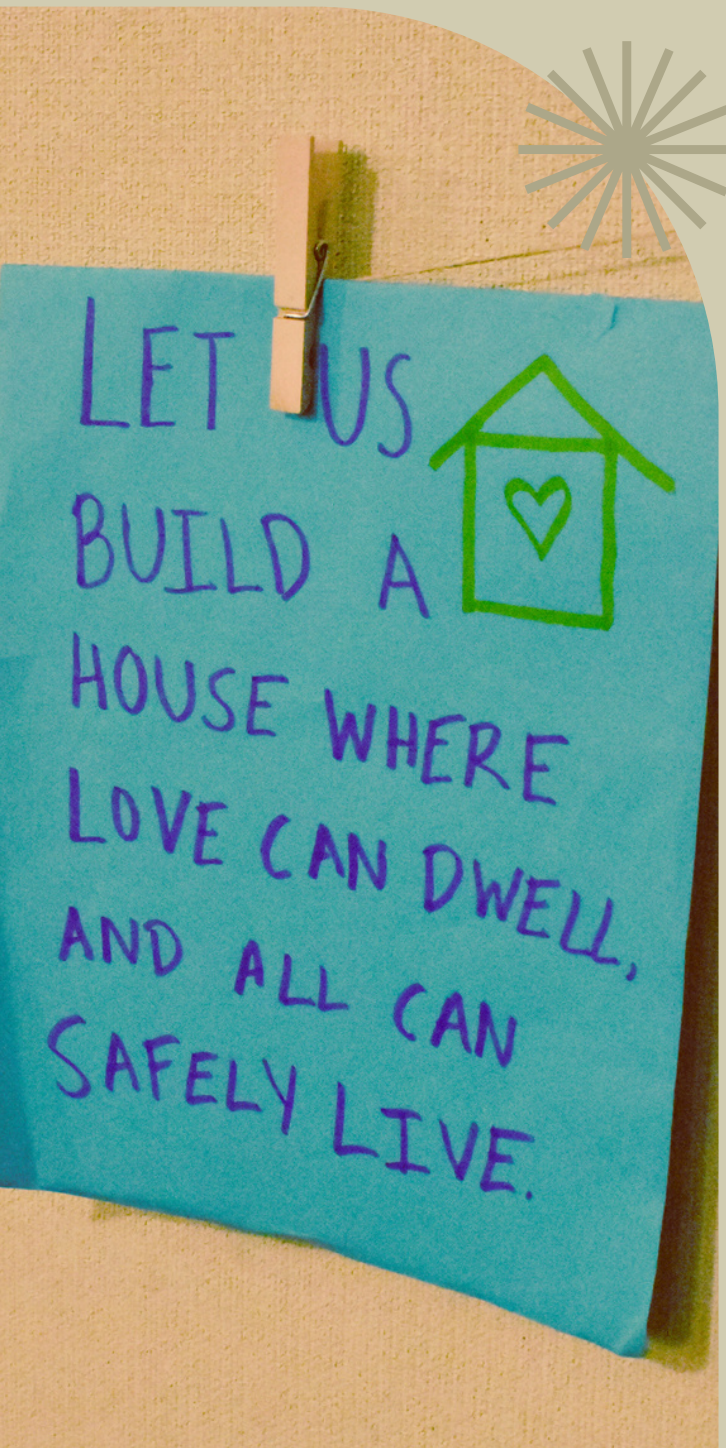 LET US
BUILD A
HOUSE WHERE
LOVE CAN DWELL,
AND ALL CAN
SAFELY LIVE.